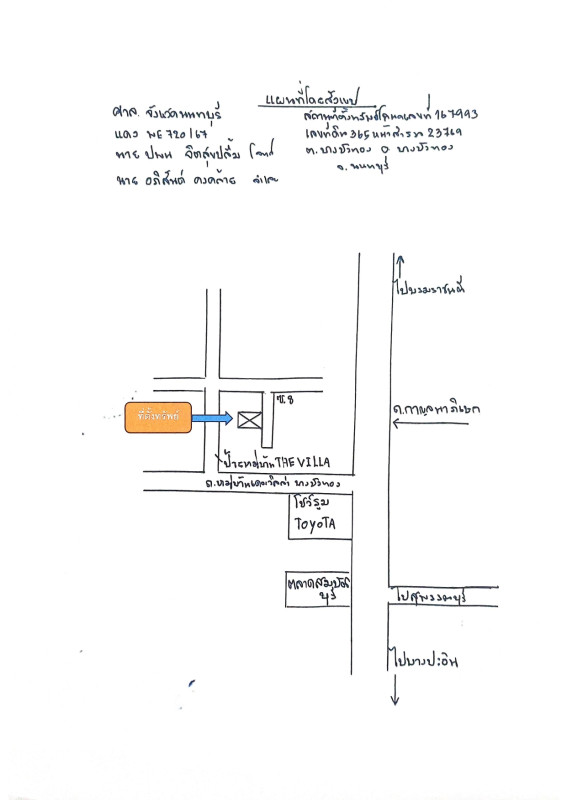 แผนที่โดยสังเขป
ศาล จังหวัดนนทบุรี
แดง ผบE 720/67
นาย ปพน จิตสุขปลื้ม โจทก์
นาย อภิสันต์ คงคล้าย จำเลย
สถานที่ตั้งทรัพย์โฉนดเลขที่ 167993
เลขที่ดิน 365 หน้าสำรวจ 23769
ต. บางบัวทอง อ บางบัวทอง
จ. นนทบุรี
ไปบรมราชชนนี
ซ. 8
ที่ตั้งทรัพย์
ถ.กาญจนาภิเษก
ป้ายหมู่บ้าน THE VILLA
ถ.หมู่บ้านเดอะวิลล่า บางบัวทอง
โชว์รูม
TOYOTA
ตลาดสมบัติ
บุรี
ไปสุพรรณบุรี
ไปบางปะอิน